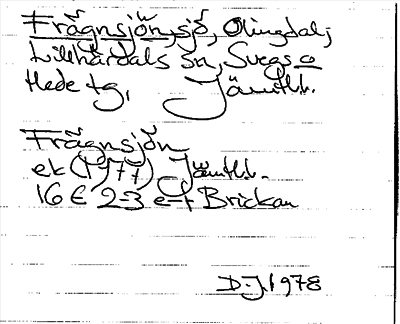 Frågnsjön, sjö, Olingdal,
Lillhärdals sn, Svegs o
Hede tg, Jämtl.
Frågnsjön
ek (1977) Jämtl.
16 E 2-3 e-f Brickan
D.J. 1978